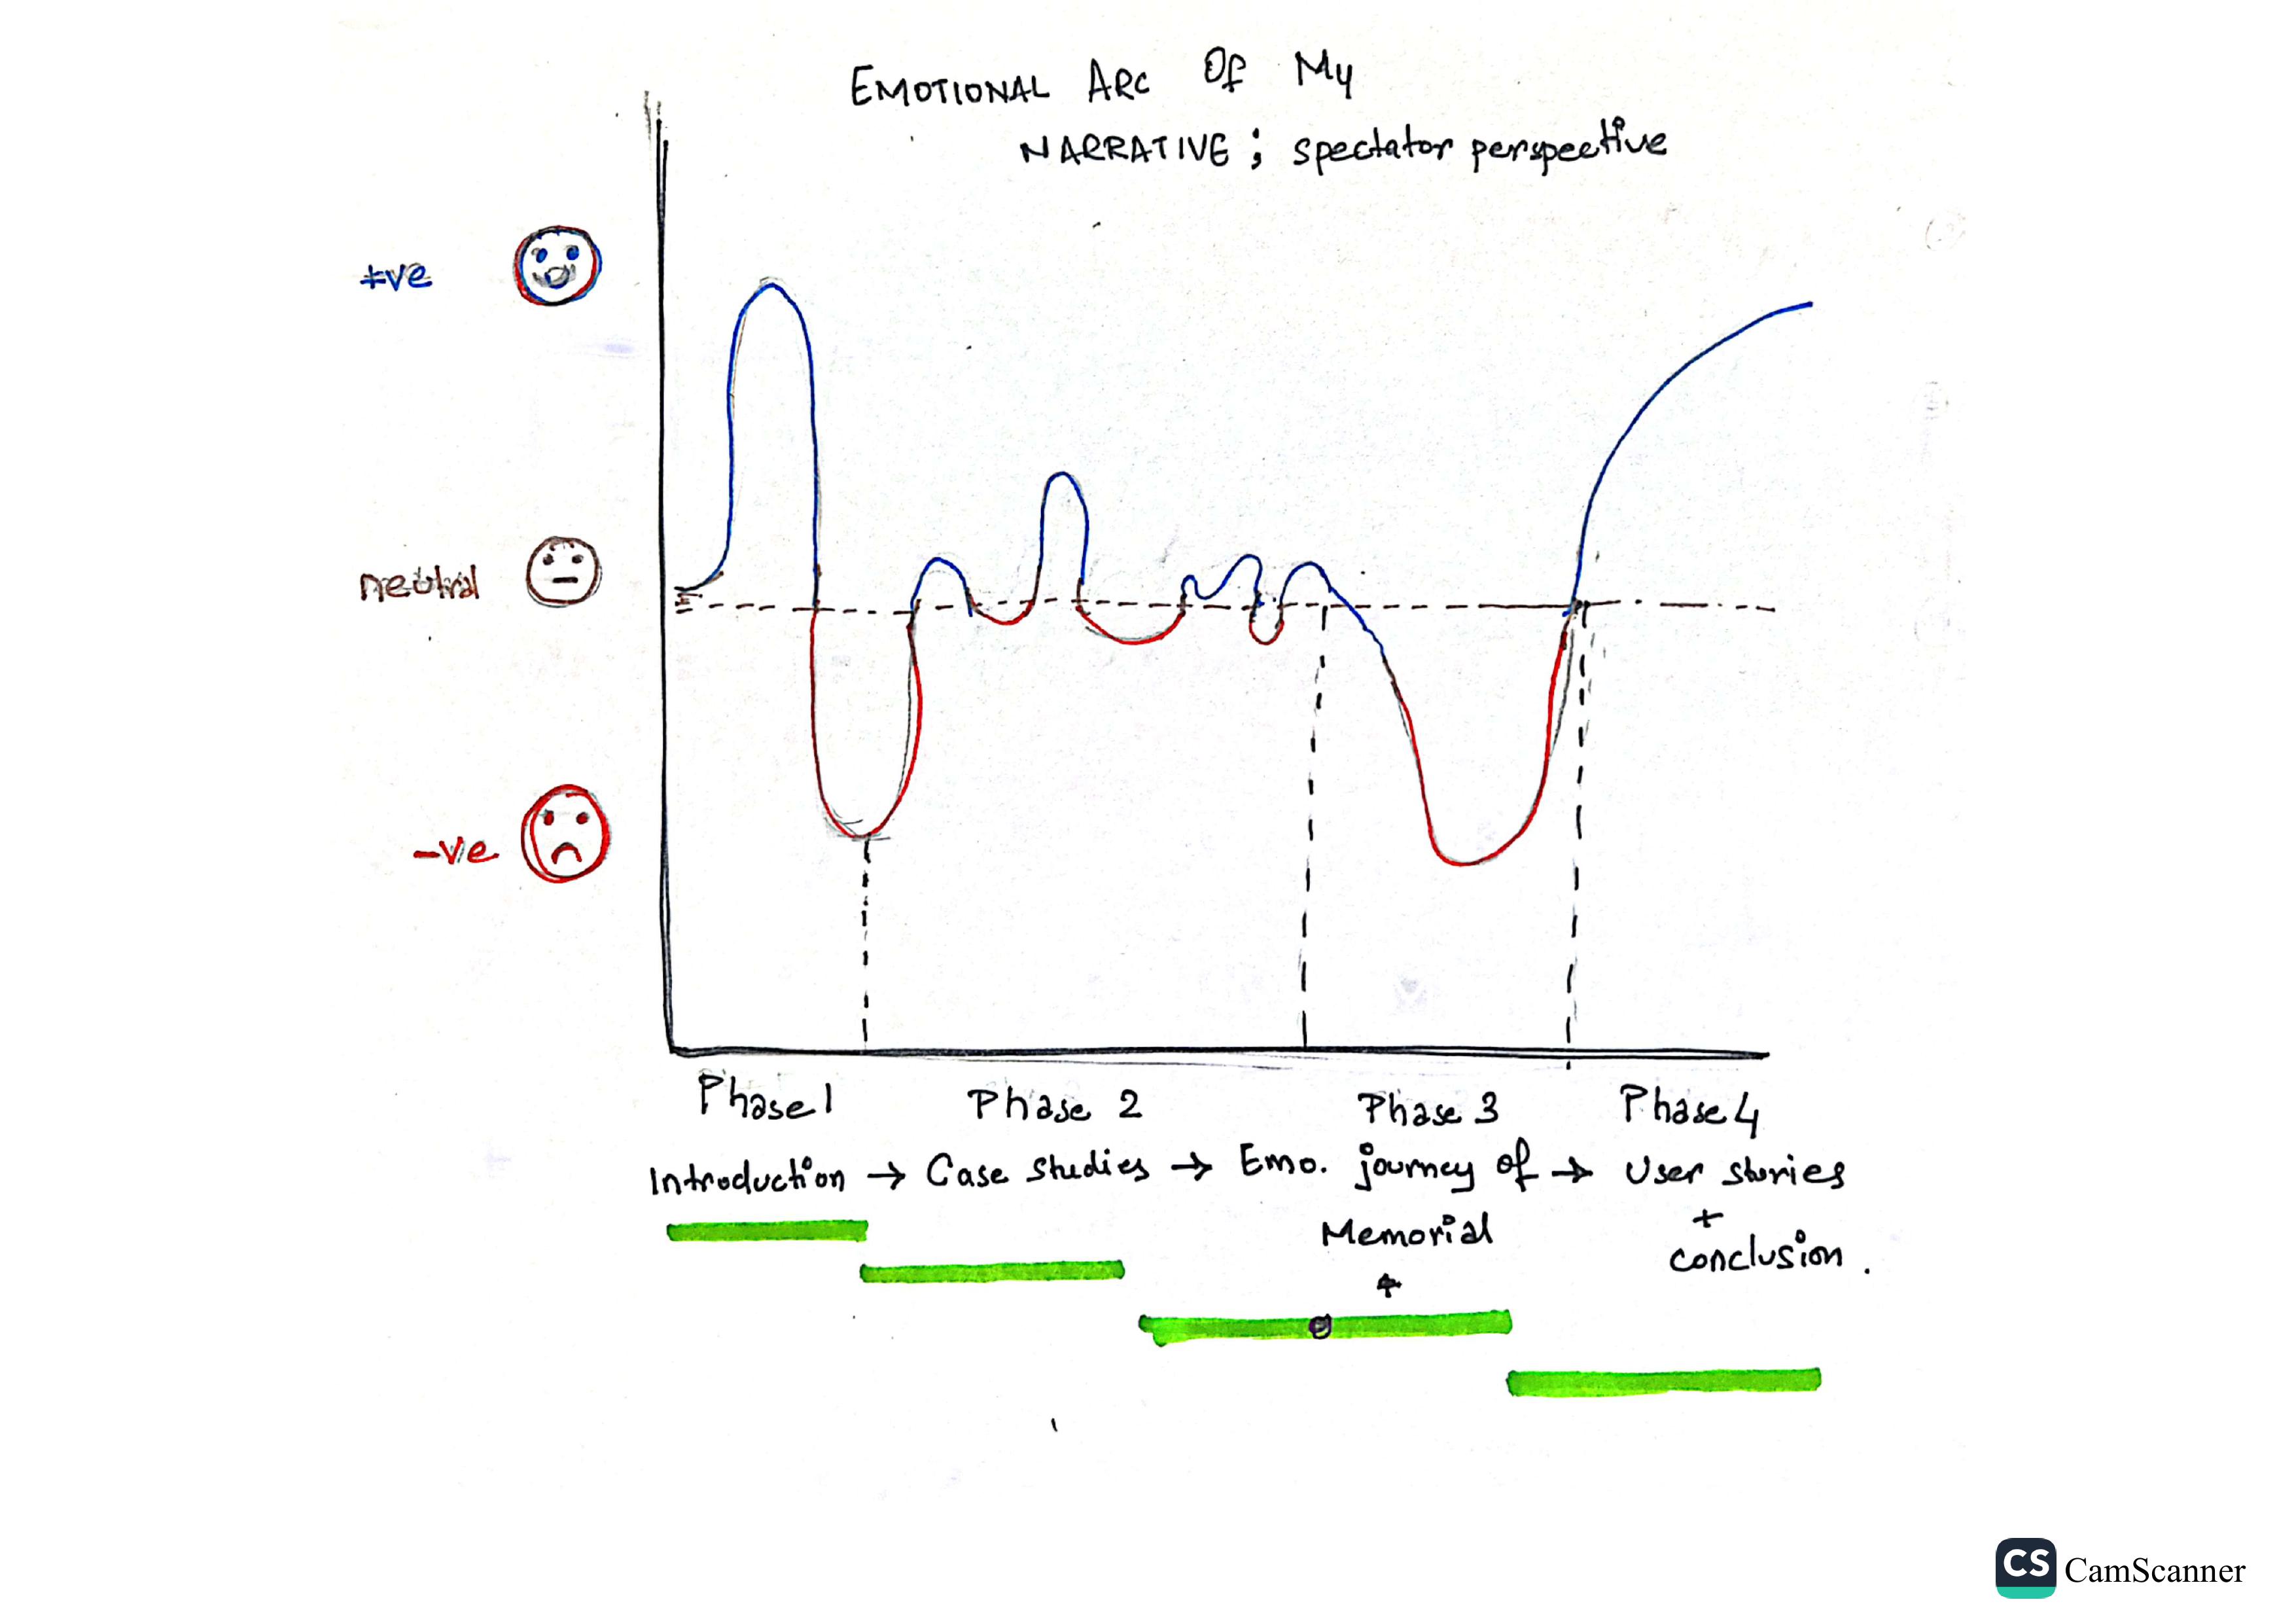 EMOTIONAL ARC Of My
NARRATIVE ; spectator perspective
+ve
neutral
-ve
Phase 1 Phase 2 Phase 3 Phase 4
Introduction → Case studies → Emo. journey of → User stories
Memorial
+
conclusion .
CS CamScanner